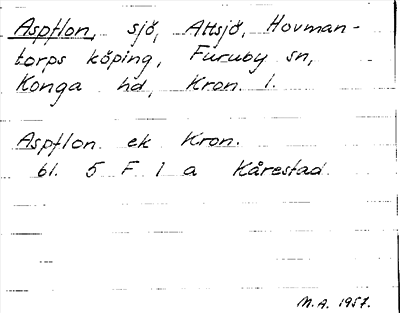 Aspflon, sjö, Attsjö, Hovman-
torps köping, Furuby sn,
Konga hd, Kron. l.
Aspflon ek Kron.
bl. 5 F 1 a Kårestad.
M.A. 1957.